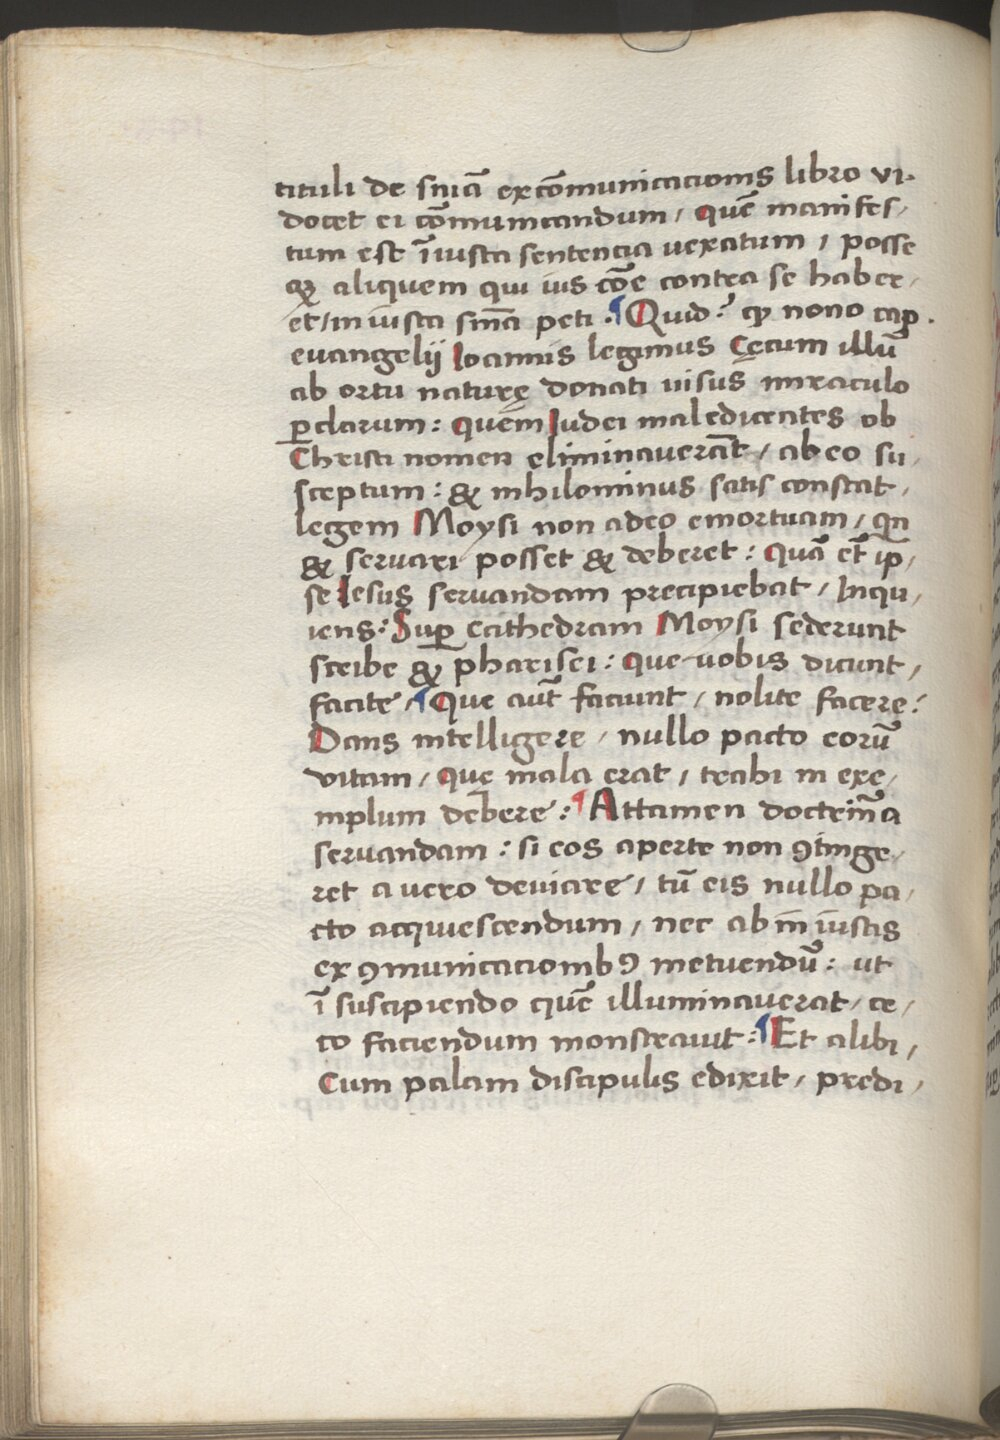 tituli de sniā excōmunicacionis libro vi.
docet ei cōmunicandum / quē manifes/
tum est īiusta sentencia uexatum / posse
qꝫ aliquem qui ius cōe contra se habe=
et / iniusta snīa peti : ¶ Quid ? ꝙ nono cap̄ .
euangelij Ioannis legimus Cęcum illū
ab ortu naturę donati uisus miraculo
p̲clarum : quem Iudei maledicentes ob
Christi nomen eliminauerāt / ab eo su/
sceptum : & nihilominus satis constat /
legem Moysi non adeo emortuam / qn̄
& seruari posset & deberet : Quā et̄ ip/
se Iesus seruandam precipiebat / Inqu/
iens : Sup̲ Cathedram Moysi sederunt
scribe & pharisei : que uobis dicunt /
facite / ¶ Que aut̄ faciunt / nolite facere :
Dans intelligere / nullo pacto eorū
vitam / quę mala erat / trahi in exe/
mplum debere : ¶ Attamen doctrin̄a
seruandam : si eos aperte non ꝯtinge/
ret a uero deuiare / tū eis nullo pa/
cto acquiescendum / nec ab in iustis
exꝯmunicacionibꝯ metuendū : ut
ī suscipiendo quē illuminauerat / ce/
co faciendum monstrauit : ¶ Et alibi /
Cum palam discipulis edixit / predi/